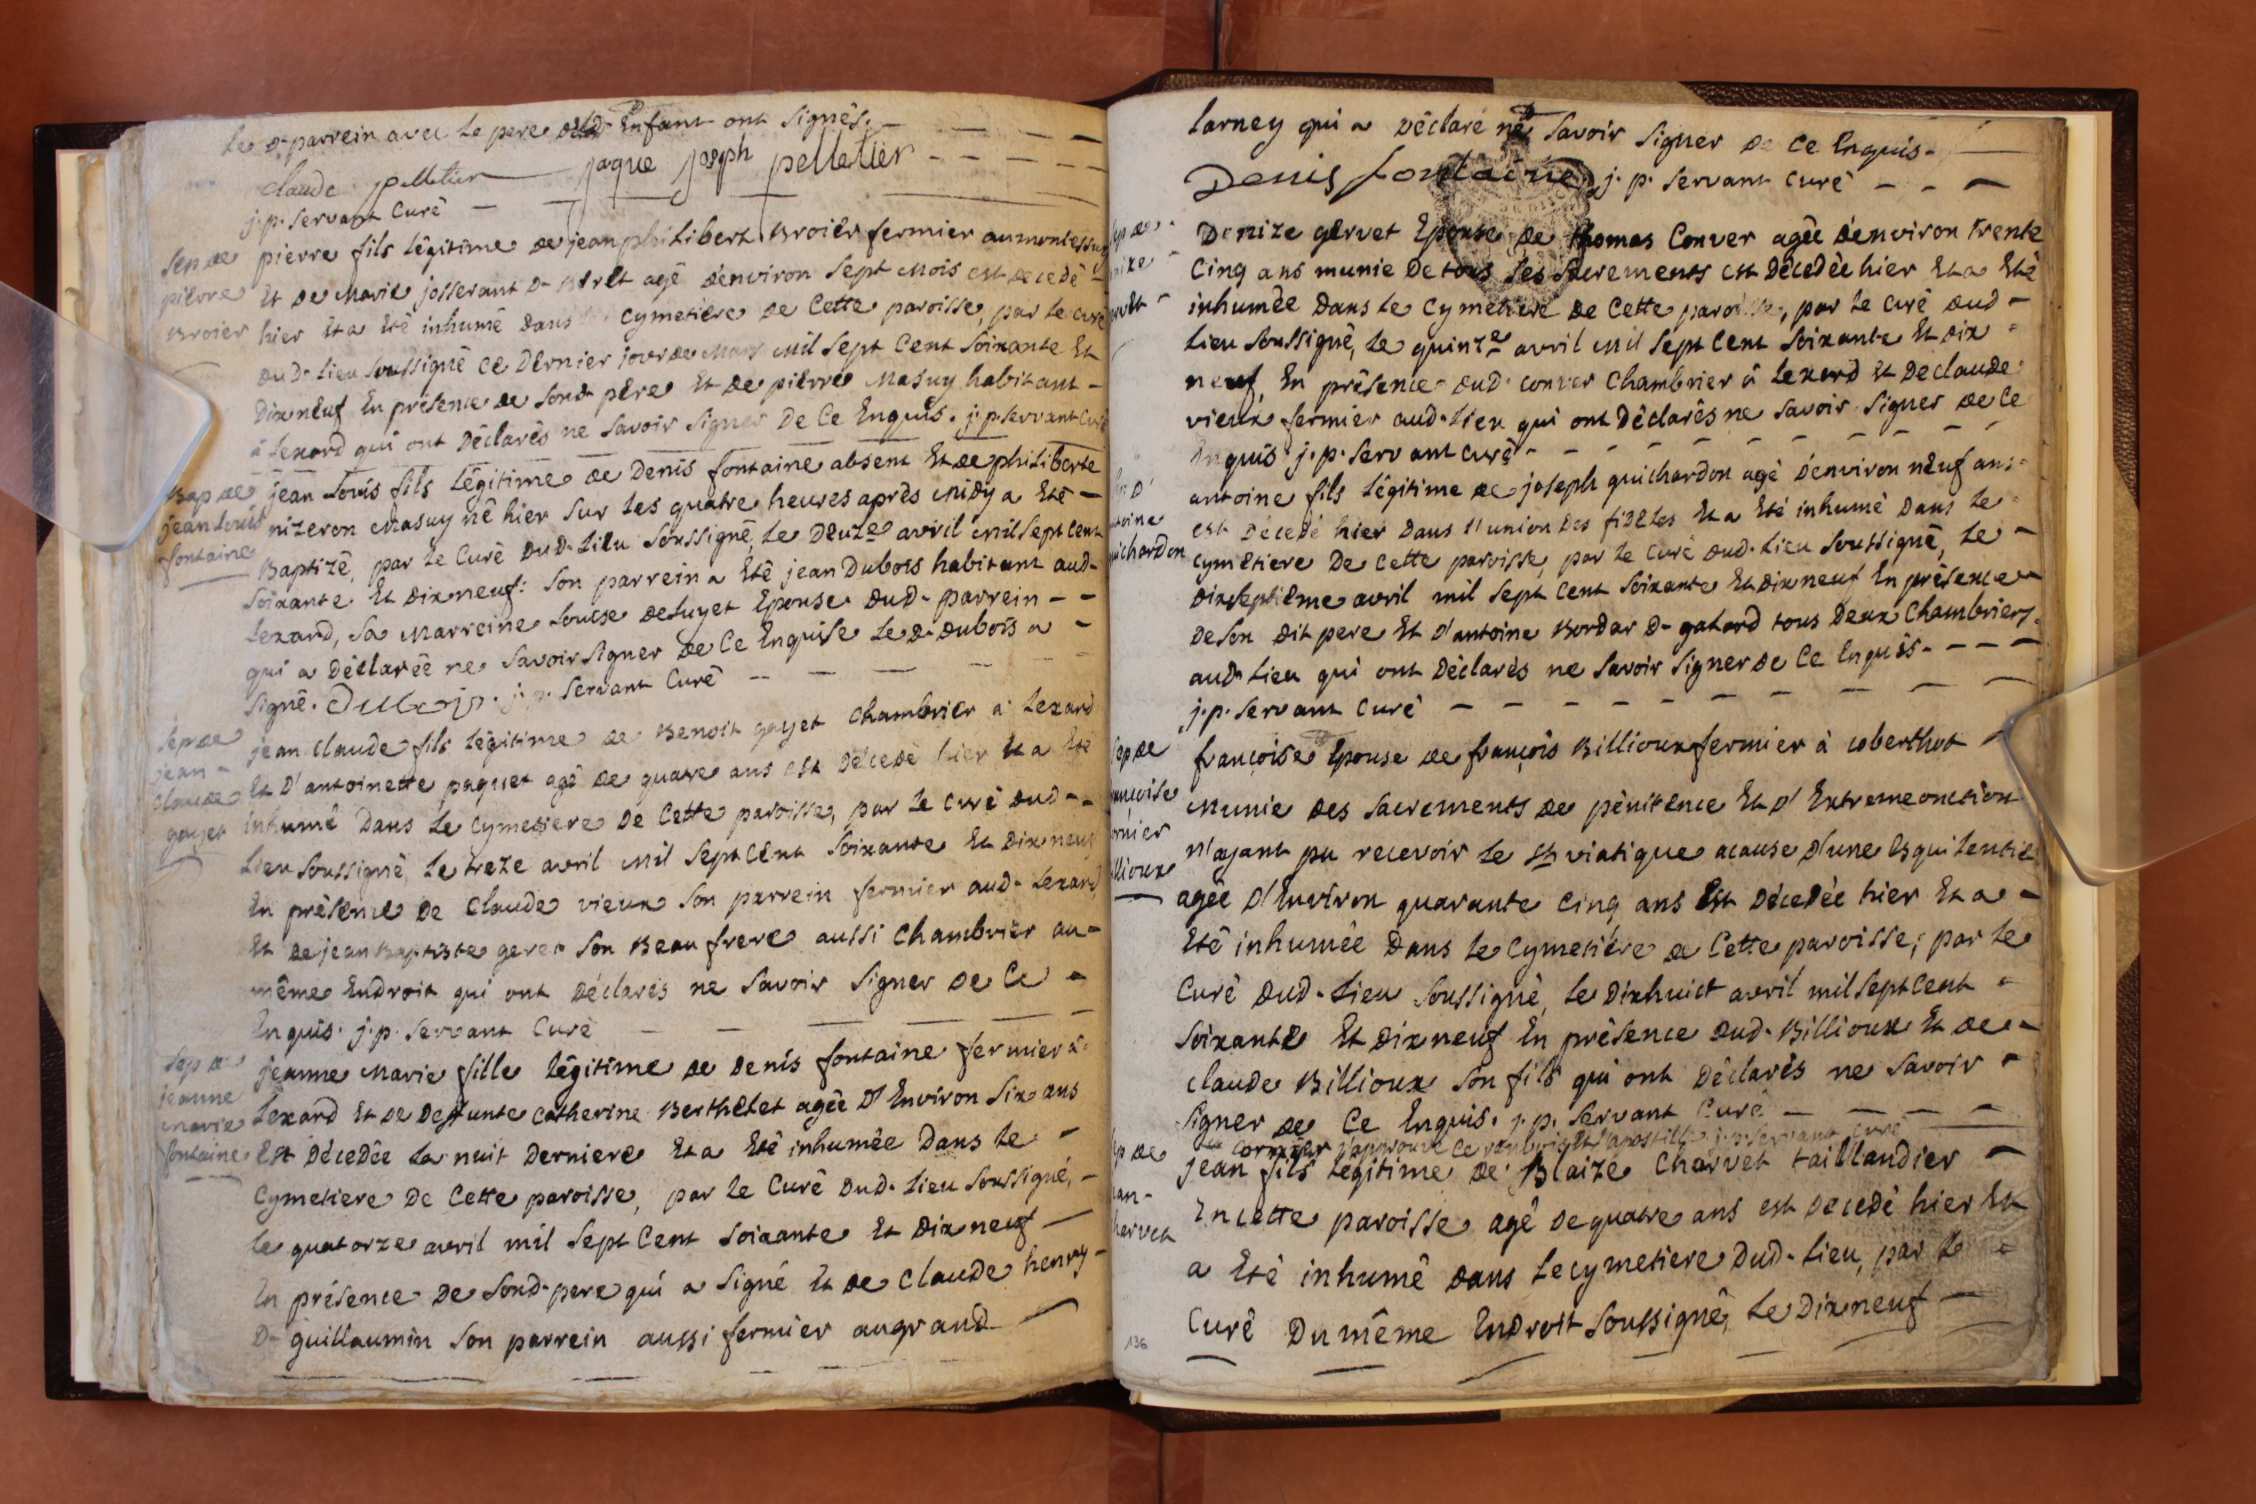 le d. parrein avec le pere dud. Enfant ont signés.
claude pelletier jaque joseph pelletier
j. p. servant Curé
Sep de
pierre
Broier
pierre fils légitime de jean philibert Broier fermier au montessuy
Et de Marie josserant d. Birét agé d'environ sept mois est décédé
hier Et a Eté inhumé dans le cymetiere de Cette paroisse, par le curé
dud. lieu soussigné ce dernier jour de Mars mil sept Cent soixante Et
dix neuf En présence de sond. pére Et de pierre Masuy habitant
à Lexard qui ont déclarés ne savoir signer de Ce Enquis. j. p. servant Curé
Bap de
jean louis
fontaine
jean louis fils légitime de Denis fontaine absent Et de philiberte
nizeron Masuy né hier sur les quatre heures après midy a Eté
Baptizé, par le Curé dud. lieu soussigné, le deuze avril mil sept cent
soixante Et dix neuf: son parrein a Eté jean Dubois habitant aud.
Lexard, sa Marreine louise deluyet Epouse dud. parrein
qui a déclarée ne savoir signer de Ce Enquise le d. dubois a
signé. Dubois. j. p. servant Curé
Sep de
jean
Claude
gayet
jean Claude fils légitime de Benoit gayet chambrier à Lexard
Et D'antoinette paquet agé de quatre ans est décedé hier Et a Eté
inhumé dans le cymetiere de Cette paroisse, par le curé dud
lieu soussigné le treze avril mil sept cent soixante Et dix neuf
En présence de Claude vieux son parrein fermier aud. Lexard,
Et de jean Baptiste geren son Beau frere aussi chambrier au
même Endroit qui ont déclarés ne savoir signer de Ce
Enquis. j. p. servant Curé
Sep de
jeanne
Marie
fontaine
jeanne Marie fille légitime de Denis fontaine fermier à
Lexard Et de deffunte catherine Berthelet agée D'Environ six ans
Est décedée la nuit derniere Et a Eté inhumée dans le
Cymetiere de Cette paroisse, par le Curé dud. lieu soussigné,
le quatorze avril mil sept Cent soixante Et dix neuf
En présence de sond. pere qui a signé Et de Claude henry
D. guillaumin son parrein aussi fermier au grand
larney qui a déclaré ne savoir signer de Ce Enquis.
Denis fontaine j. p. servant Curé
Denize gervet Epouse de thomas Conver agée d'environ trente
Cinq ans munie de tous ses sacrements est décedée hier Et a Eté
inhumée dans le Cymetiere de Cette paroisse, par le curé dud
lieu soussigné, le quinze avril mil sept Cent soixante Et dix
neuf, En présence dud. conver chambrier à Lexard Et de claude
vieux fermier aud. lieu qui ont déclarés ne savoir signer de Ce
Enquis j. p. servant curé
antoine fils légitime de joseph guichardon agé d'environ neuf ans
est décedé hier dans l'union des fidéles Et a Eté inhumé dans le
Cymetiere de cette paroisse, par le curé dud. lieu soussigné, le
dix septiéme avril mil sept Cent soixante Et dix neuf En présence
de son dit pere Et d'antoine Bordar D. gatard tous deux chambriers
aud. lieu qui ont déclarés ne savoir signer de Ce Enquis.
j. p. servant Curé
Sep de
françoise Epouse de françois Billioux fermier à coberthot
Munie des sacrements de pénitence Et d'Extreme onction
n'ayant pu recevoir le st viatique a cause d'une Esquilentie
agée d'Environ quarante Cinq ans Est décedée hier Et a
Eté inhumée dans le cymetiére de Cette paroisse, par le
Curé dud. lieu soussigné, le dix huict avril mil sept Cent
soixante Et dix neuf En présence dud. Billioux Et de
claude Billioux son fils qui ont déclarés ne savoir
signer de Ce Enquis. j. p. servant Curé
cornier j'approuve ce renvoi Et l'apostille j. p. servant curé
jean fils légitime de Blaize Charvet taillandier
En cette paroisse agé de quatre ans est décedé hier Et
a Eté inhumé dans le cymetiere dud. lieu, par le
Curé du même Endroit soussigné, le dix neuf
136